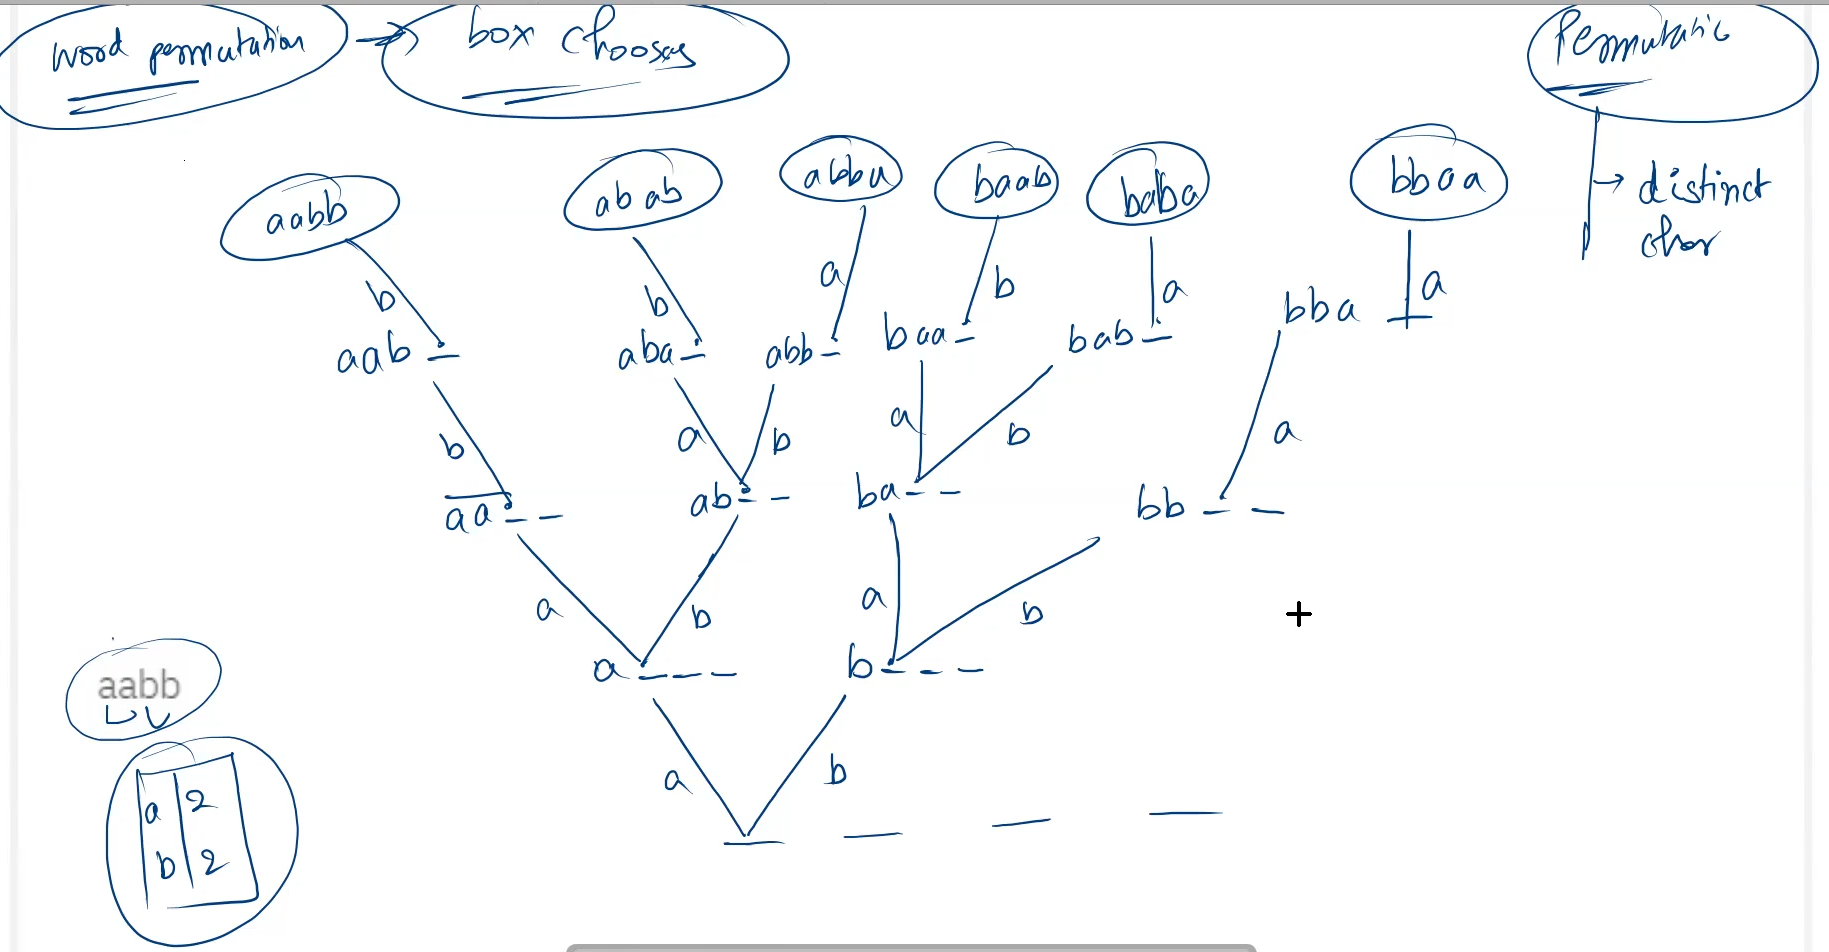 word permutation → box chooses
Permutatic
→ distinct
char
aabb
abab
abba
baab
baba
bbaa
b
b
a
b
a
a
aab _
aba _
abb _
baa _
bab _
bba _
b
a
b
a
b
a
aa _ _
ab _ _
ba _ _
bb _ _
a
b
a
b
a _ _ _
b _ _ _
aabb
a
b
_ _ _ _
a 2
b 2